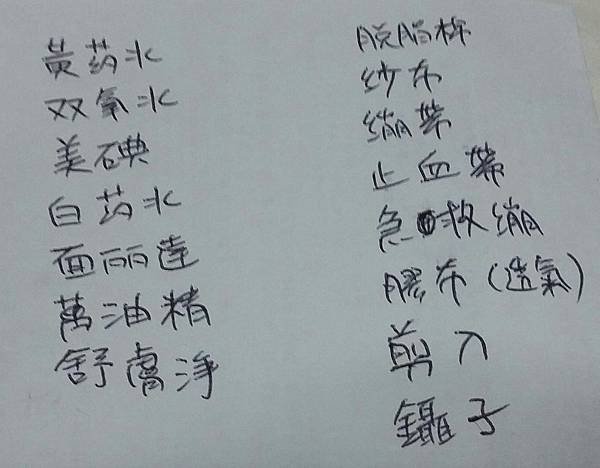 黃药水
双氧水
美碘
白药水
面丽達
萬油精
舒膚淨
脱脂棉
紗布
繃帶
止血帶
急救繃
膠布(透氣)
剪刀
鑷子